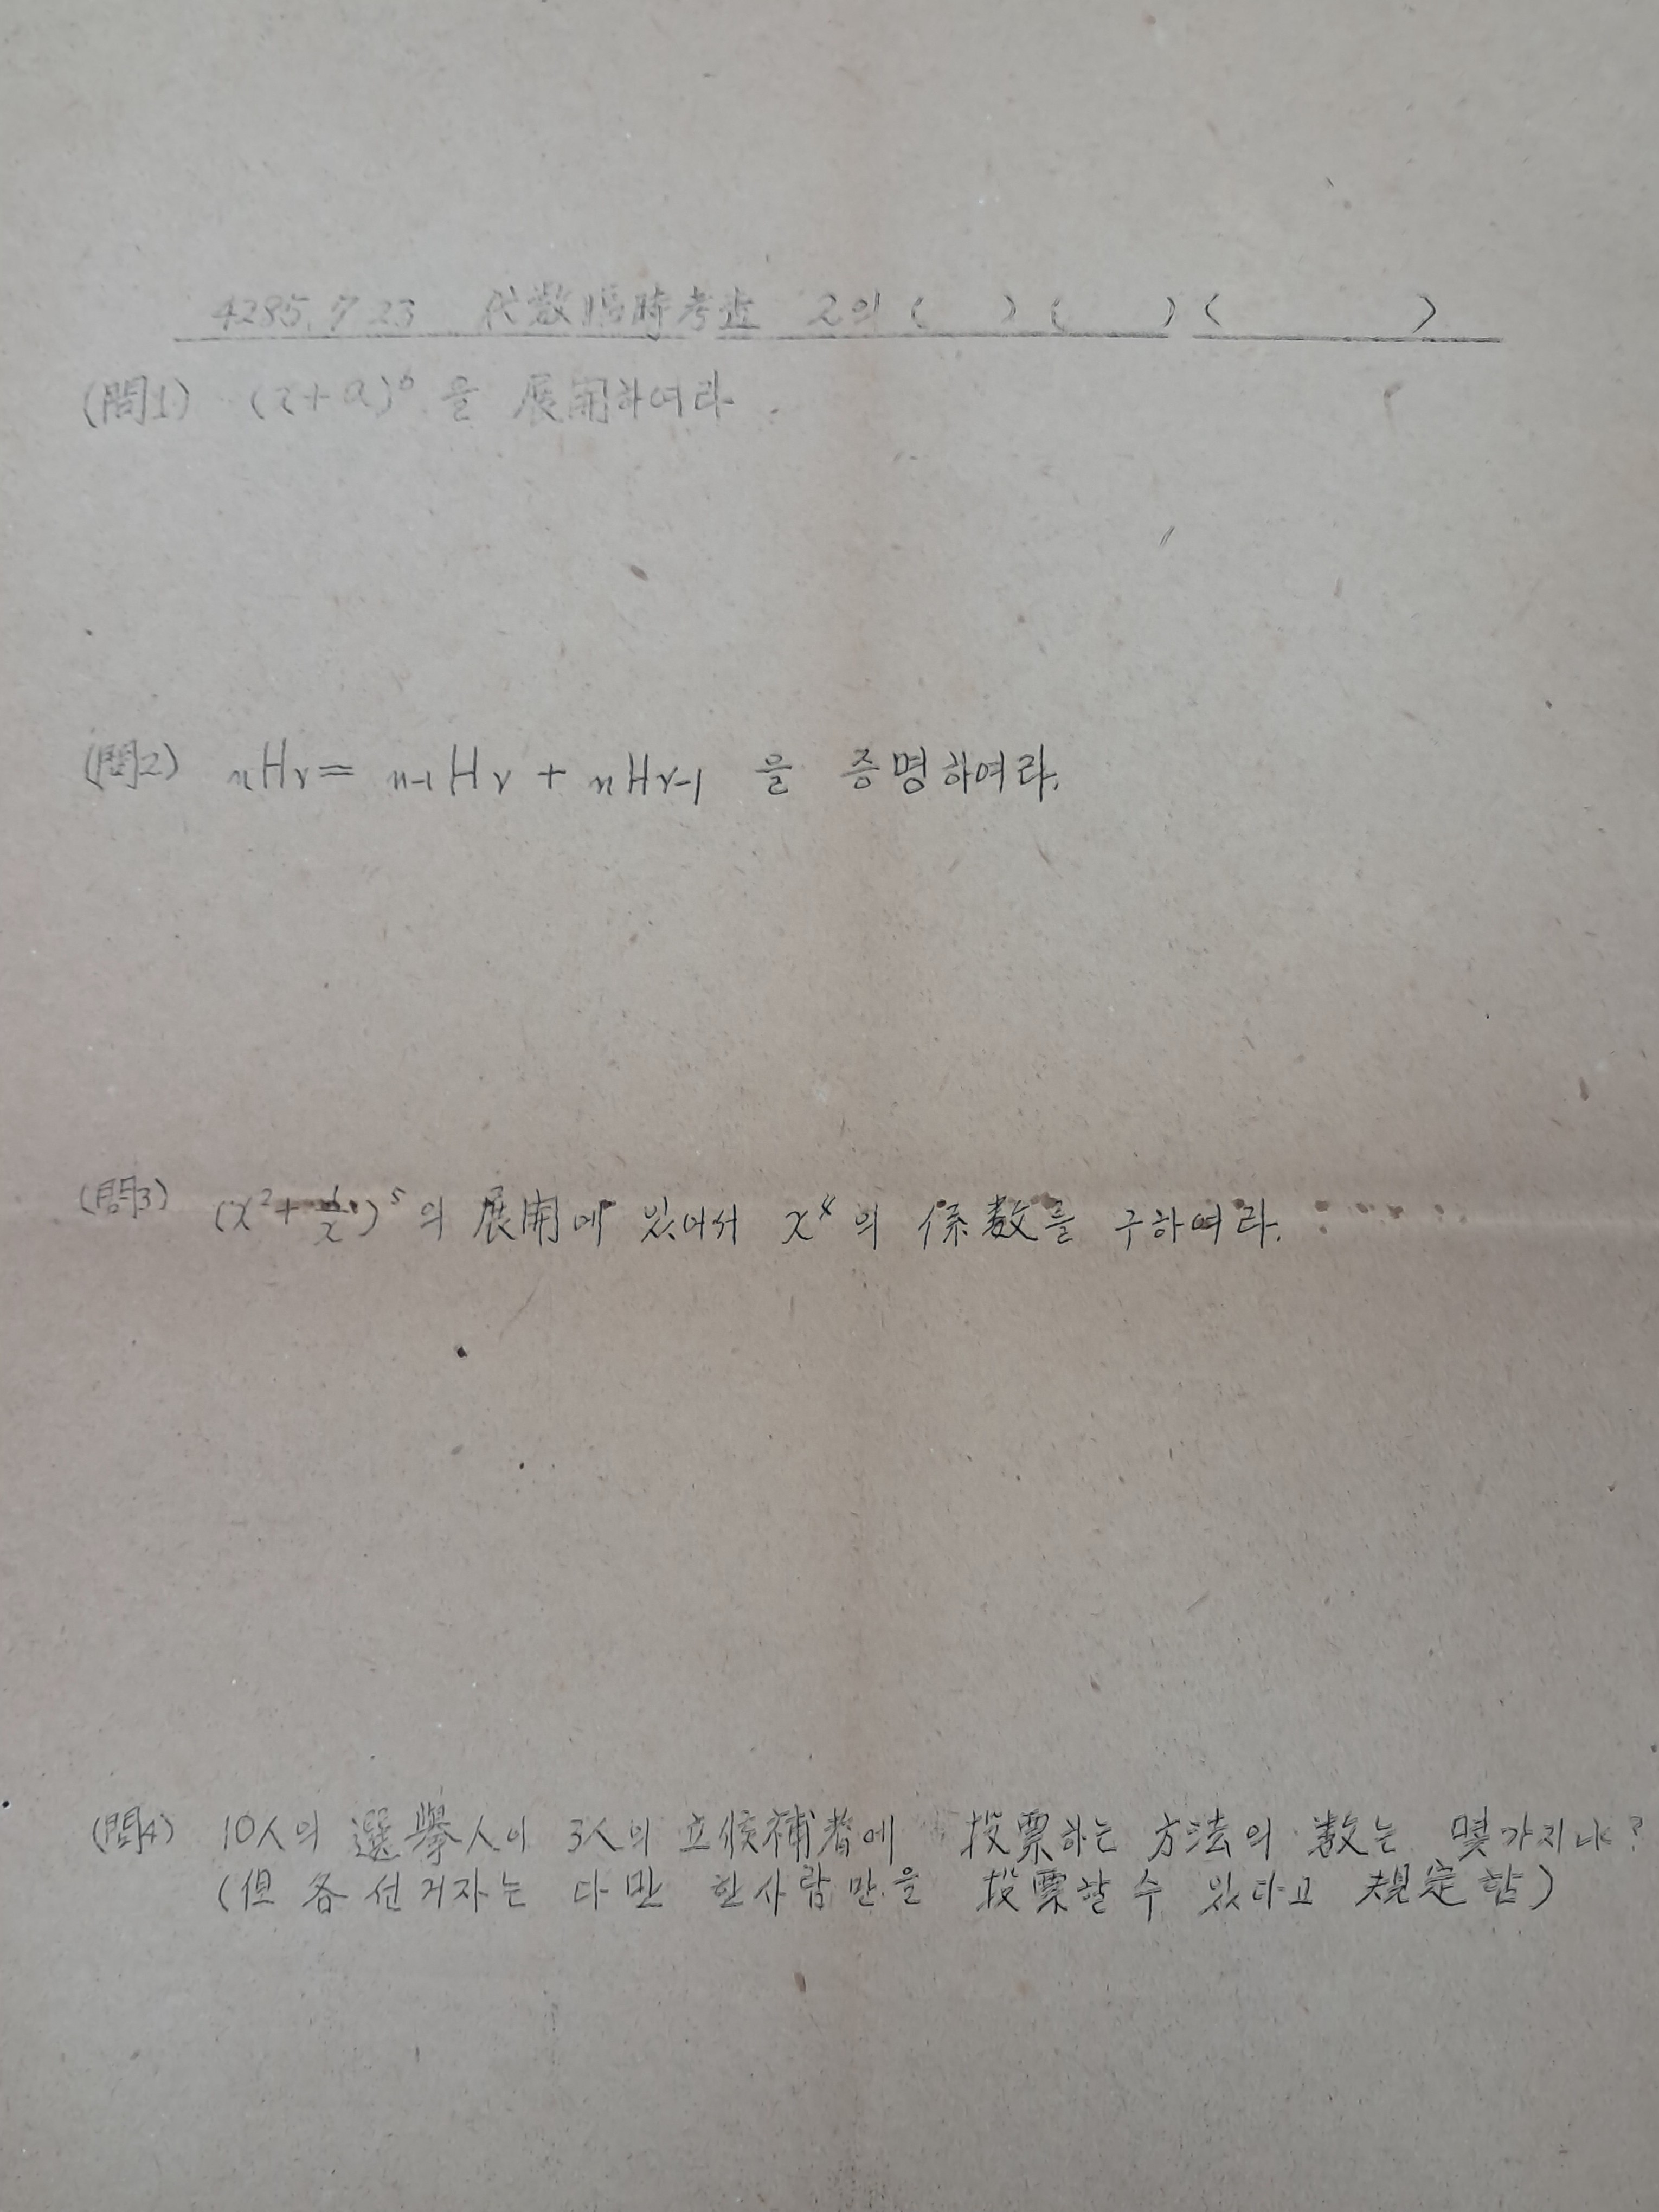 4285. 7. 23 代数臨時考査 2의 ( ) ( ) ( )
(問1) (x+a)⁶ 을 展開하여라.
(問2) ₙHᵣ = ₙ₋₁Hᵣ + ₙHᵣ₋₁ 을 증명하여라.
(問3) (x²+1/x)⁵의 展開에 있어서 x⁴의 係数를 구하여라.
(問4) 10人의 選擧人이 3人의 立候補者에 投票하는 方法의 数는 몇가지냐?
(但 各 선거자는 다만 한사람만을 投票할 수 있다고 規定함)